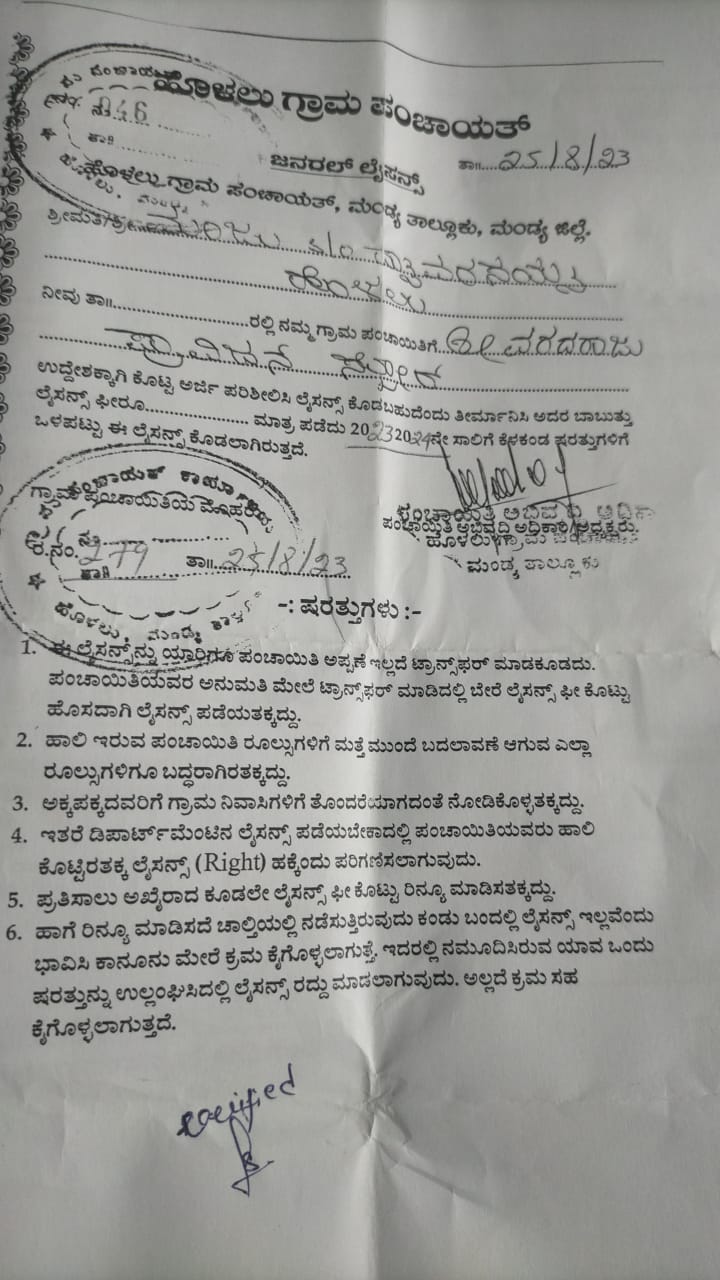 ಹೊಳಲು ಗ್ರಾಮ ಪಂಚಾಯತ್
ನಂ. 246
ಜನರಲ್ ಲೈಸನ್ಸ್ ತಾ॥ 25/8/23
ಹೊಳಲು ಗ್ರಾಮ ಪಂಚಾಯತ್, ಮಂಡ್ಯ ತಾಲ್ಲೂಕು, ಮಂಡ್ಯ ಜಿಲ್ಲೆ.
ಶ್ರೀಮತಿ/ಶ್ರೀ s/o
ಹೊಳಲು
ನೀವು ತಾ॥ ರಲ್ಲಿ ನಮ್ಮ ಗ್ರಾಮ ಪಂಚಾಯಿತಿಗೆ ಶ್ರೀ ವರದರಾಜು
ಪ್ರಾವಿಜನ್ ಸ್ಟೋರ್
ಉದ್ದೇಶಕ್ಕಾಗಿ ಕೊಟ್ಟ ಅರ್ಜಿ ಪರಿಶೀಲಿಸಿ ಲೈಸನ್ಸ್ ಕೊಡಬಹುದೆಂದು ತೀರ್ಮಾನಿಸಿ ಅದರ ಬಾಬುತ್ತು
ಲೈಸನ್ಸ್ ಫೀರೂ.................... ಮಾತ್ರ ಪಡೆದು 2023 2024ನೇ ಸಾಲಿಗೆ ಕೆಳಕಂಡ ಷರತ್ತುಗಳಿಗೆ
ಒಳಪಟ್ಟು ಈ ಲೈಸನ್ಸ್ ಕೊಡಲಾಗಿರುತ್ತದೆ.
ಗ್ರಾಮ ಪಂಚಾಯಿತಿಯ ಮೊಹರು
ಪಂಚಾಯಿತಿ ಅಭಿವೃದ್ಧಿ ಅಧಿಕಾರಿ/ಅಧ್ಯಕ್ಷರು.
ಹೊಳಲು ಗ್ರಾಮ ಪಂಚಾಯಿತಿ
ಮಂಡ್ಯ ತಾಲ್ಲೂಕು
ಕ್ರ.ನಂ. 279 ತಾ॥ 25/8/23
ಹೊಳಲು, ಮಂಡ್ಯ ತಾಲ್ಲೂಕು
-: ಷರತ್ತುಗಳು :-
1. ಈ ಲೈಸನ್ಸ್‌ನ್ನು ಯಾರಿಗೂ ಪಂಚಾಯಿತಿ ಅಪ್ಪಣೆ ಇಲ್ಲದೆ ಟ್ರಾನ್ಸ್‌ಫರ್ ಮಾಡಕೂಡದು.
ಪಂಚಾಯಿತಿಯವರ ಅನುಮತಿ ಮೇಲೆ ಟ್ರಾನ್ಸ್‌ಫರ್ ಮಾಡಿದಲ್ಲಿ ಬೇರೆ ಲೈಸನ್ಸ್ ಫೀ ಕೊಟ್ಟು
ಹೊಸದಾಗಿ ಲೈಸನ್ಸ್ ಪಡೆಯತಕ್ಕದ್ದು.
2. ಹಾಲಿ ಇರುವ ಪಂಚಾಯಿತಿ ರೂಲ್ಸುಗಳಿಗೆ ಮತ್ತೆ ಮುಂದೆ ಬದಲಾವಣೆ ಆಗುವ ಎಲ್ಲಾ
ರೂಲ್ಸುಗಳಿಗೂ ಬದ್ಧರಾಗಿರತಕ್ಕದ್ದು.
3. ಅಕ್ಕಪಕ್ಕದವರಿಗೆ ಗ್ರಾಮ ನಿವಾಸಿಗಳಿಗೆ ತೊಂದರೆಯಾಗದಂತೆ ನೋಡಿಕೊಳ್ಳತಕ್ಕದ್ದು.
4. ಇತರೆ ಡಿಪಾರ್ಟ್‌ಮೆಂಟಿನ ಲೈಸನ್ಸ್ ಪಡೆಯಬೇಕಾದಲ್ಲಿ ಪಂಚಾಯಿತಿಯವರು ಹಾಲಿ
ಕೊಟ್ಟಿರತಕ್ಕ ಲೈಸನ್ಸ್ (Right) ಹಕ್ಕೆಂದು ಪರಿಗಣಿಸಲಾಗುವುದು.
5. ಪ್ರತಿಸಾಲು ಅಖೈರಾದ ಕೂಡಲೇ ಲೈಸನ್ಸ್ ಫೀ ಕೊಟ್ಟು ರಿನ್ಯೂ ಮಾಡಿಸತಕ್ಕದ್ದು.
6. ಹಾಗೆ ರಿನ್ಯೂ ಮಾಡಿಸದೆ ಚಾಲ್ತಿಯಲ್ಲಿ ನಡೆಸುತ್ತಿರುವುದು ಕಂಡು ಬಂದಲ್ಲಿ ಲೈಸನ್ಸ್ ಇಲ್ಲವೆಂದು
ಭಾವಿಸಿ ಕಾನೂನು ಮೇರೆ ಕ್ರಮ ಕೈಗೊಳ್ಳಲಾಗುತ್ತೆ. ಇದರಲ್ಲಿ ನಮೂದಿಸಿರುವ ಯಾವ ಒಂದು
ಷರತ್ತುನ್ನು ಉಲ್ಲಂಘಿಸಿದಲ್ಲಿ ಲೈಸನ್ಸ್ ರದ್ದು ಮಾಡಲಾಗುವುದು. ಅಲ್ಲದೆ ಕ್ರಮ ಸಹ
ಕೈಗೊಳ್ಳಲಾಗುತ್ತದೆ.
verified